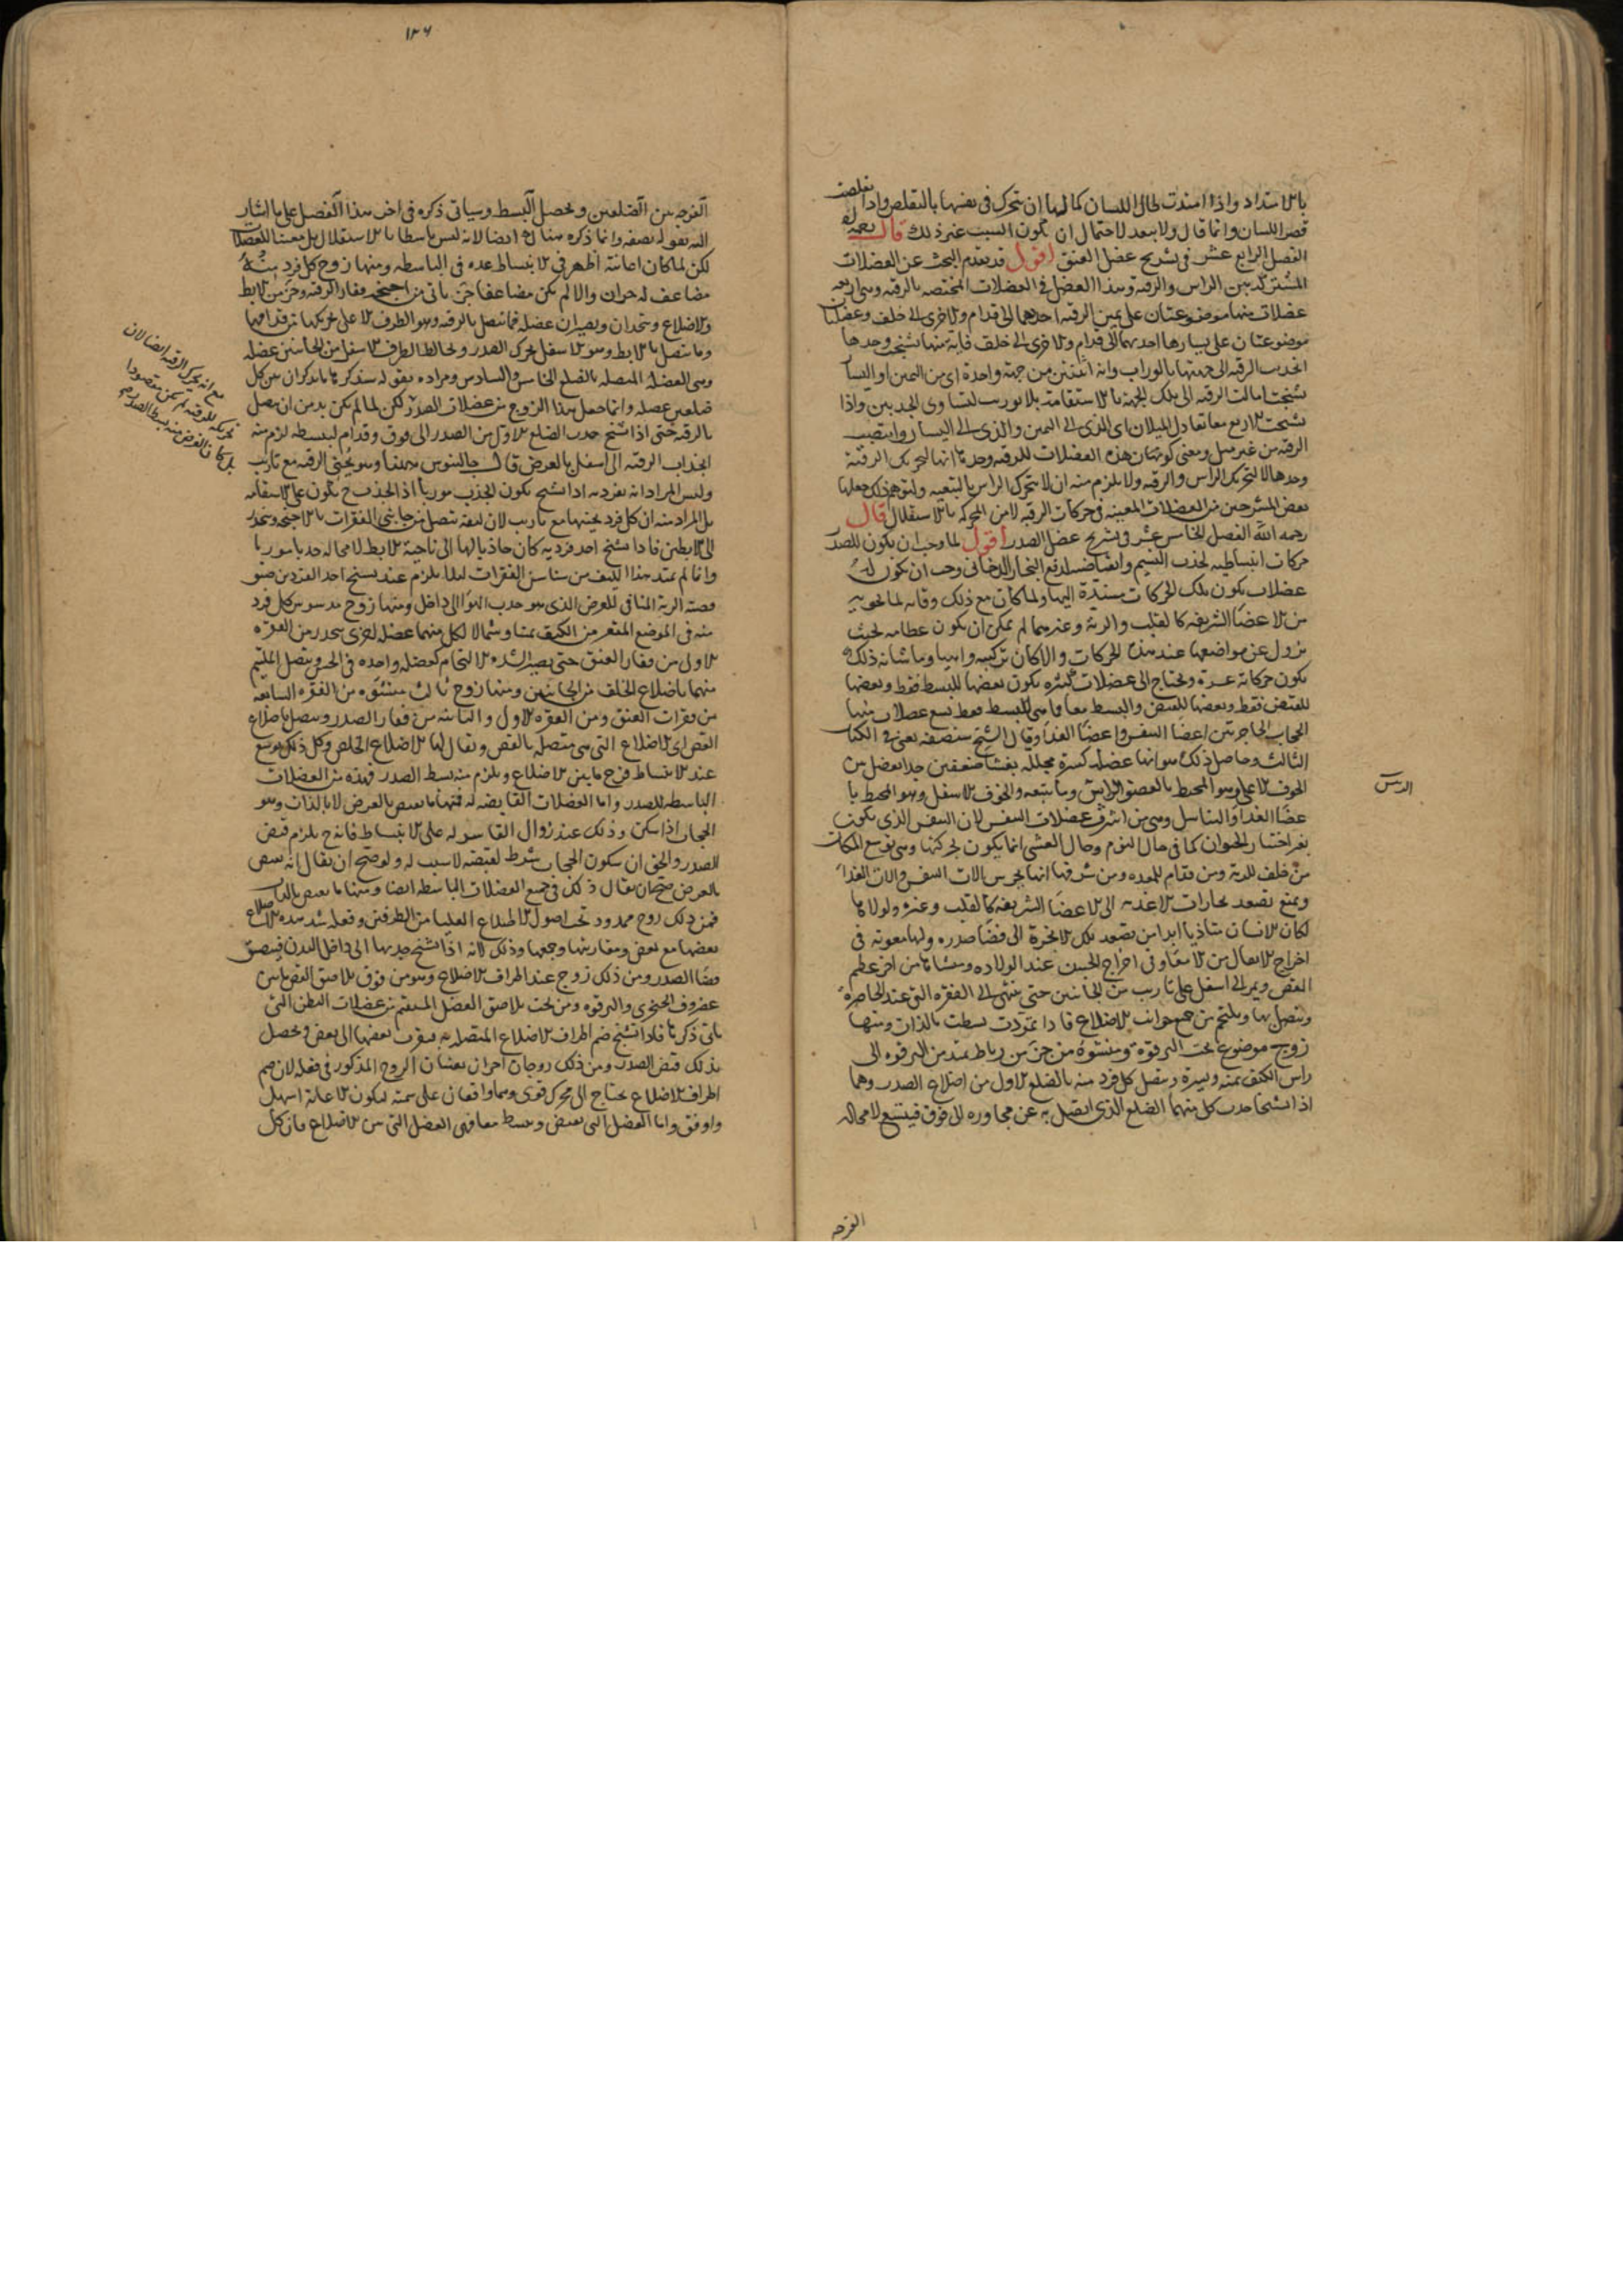 بالامتداد واذا امتدت طال اللسان كما لها ان تتحرك في بعضها بالتقلص واذا تقلصت
قصر اللسان وانما قال ولا يبعد لاحتمال ان يكون السبب غير ذلك قال رحمه الله
الفصل الرابع عشر في تشريح عضل العنق اقول قد تقدم البحث عن العضلات
المشتركة بين الراس والرقبة وهذا الفصل في العضلات المختصة بالرقبة وهي اربعة
عضلات منها موضوعتان على يمين الرقبة احدهما الى قدام والاخرى الى خلف وعضلتان
موضوعتان على يسارها احدهما الى قدام والاخرى الى خلف فاية منها تشنجت وحدها
انجذبت الرقبة الى جهتها بالوراب واية اثنتين من جهة واحدة اي من اليمين او اليسار
تشنجت امالت الرقبة الى تلك الجهة بالاستقامة بلا توريب لتساوي الجذبين واذا
تشنجت الاربع معا تعادل الميلان اي الذي الى اليمين والذي الى اليسار وانتصبت
الرقبة من غير ميل ومعنى كون هذه العضلات للرقبة وحدها انها لتحريك الرقبة
وحدها لا لتحريك الراس والرقبة ولا يلزم منه ان لا يتحرك الراس بالتبعية ولتوهم ذلك جعلها
بعض المشرحين من العضلات المعينة في حركات الرقبة لا من المحركة بالاستقلال قال
رحمه الله الفصل الخامس عشر في تشريح عضل الصدر اقول لما وجب ان يكون للصدر
حركات انبساطية لجذب النسيم وانقباضية لدفع البخار الدخاني وجب ان يكون له
عضلات يكون تلك الحركات مستندة اليها ولما كان مع ذلك وقاية لما يحويه
من الاعضا الشريفة كالقلب والرية وغيرهما لم يمكن ان يكون عظامه بحيث
يزول عن مواضعها عند هذه الحركات والا كان تركيبه واهيا وما شانه ذلك
يكون حركاته عسرة ويحتاج الى عضلات كثيرة يكون بعضها للبسط فقط وبعضها
للقبض فقط وبعضها للقبض والبسط معا فما هي للبسط فقط تسع عضلات منها
الحجاب الحاجز بين اعضا التنفس واعضا الغذا وقال الشيخ سنصفه يعني في الكتاب
الثالث وحاصل ذلك هو انها عضلة كبيرة مجللة بغشا ضعفين جدا يفصل بين
الجوف الاعلى وهو المحيط بالعضو الرئيس وما يتبعه والجوف الاسفل وهو المحيط با
عضا الغذا والتناسل وهي من اشرف عضلات التنفس لان التنفس الذي يكون
بغير اختيار الحيوان كما في حال النوم وحال الغشي انما يكون بحركتها وهي توسع المكان
من خلف للرية ومن قدام للمعدة ومن شرفها انها تحرس الات التنفس والات الغذا
ويمنع تصعد بخارات الاغذية الى الاعضا الشريفة كالقلب وغيره ولولاها
لكان الانسان متاذيا ابدا من تصعد تلك الابخرة الى فضا صدره ولها معونة في
اخراج الاثفال من الامعاء وفي اخراج الجنين عند الولادة ومنشاها من اخر عظم
القص ويمر الى اسفل على تاريب من الجانبين حتى ينتهي الى الفقرة التي عند الخاصرة
ويتصل بها ويلتحم من جميع جوانب الاضلاع فاذا تمددت بسطت بالذات ومنها
زوج موضوع تحت الترقوة ومنشوه من جزء من رباط يمتد من الترقوة الى
راس الكتف يمنة ويسرة ويتصل كل فرد منه بالضلع الاول من اضلاع الصدر وهما
اذا تشنجا جذب كل منهما الضلع الذي اتصل به عن مجاوره الى فوق فيتسع لا محالة
الفرجة
الدرس
١٣٦
الفرجة بين الضلعين ويحصل البسط وسياتي ذكره في اخر هذا الفصل على ما اشار
اليه بقوله نصفه وانما ذكره هناك ايضا لانه ليس باسطا بالاستقلال بل معينا للعضلات
لكن لما كان اعانته اظهر في الانبساط عده في الباسطة ومنها زوج كل فرد منه
مضاعف له جزان والا لم يكن مضاعفا جزء ياتي من اجنحة فقار الرقبة وجزء من الابط
والاضلاع ويتحدان ويصيران عضلة فما يتصل بالرقبة وهو الطرف الاعلى يحركها من قدامها
وما يتصل بالابط وهو الاسفل يحرك الصدر ويخالط الطرف الاسفل من الجانبين عضلة
وهي العضلة المتصلة بالضلع الخامس والسادس ومراده بقوله سنذكرها ما يذكر ان بين كل
ضلعين عضلة وانما جعل هذا الزوج من عضلات الصدر لكن لما لم يكن بد من ان يتصل
بالرقبة حتى اذا تشنج جذب الضلع الاول من الصدر الى فوق وقدام لبسطه لزم منه
انجذاب الرقبة الى اسفل بالعرض قال جالينوس مطلقا وهو يحني الرقبة مع تاريب
وليس المراد انه بفرديه اذا تشنج يكون الجذب موربا اذ الجذب ح يكون على الاستقامة
بل المراد منه ان كل فرد يحنيها مع تاريب لان ليفه يتصل من جانبي الفقرات بالاجنحة وينحدر
الى الابطين فاذا تشنج احد فرديه كان جاذبا لها الى ناحية الابط لا محالة جذبا موربا
وانما لم يمتد هذا الليف من سناسن الفقرات لئلا يلزم عند تشنج احد الفردين ضيق
قصبة الرية المنافي للغرض الذي هو جذب الهوا الى داخل ومنها زوج مدسوس كل فرد
منه في الموضع المقعر من الكتف يمينا وشمالا لكل منهما عضلة اخرى ينحدر من الفقرة
الاولى من فقار العنق حتى يصير لشدة الالتحام كعضلة واحدة في الحس ويتصل الملتحم
منهما باضلاع الخلف من الجانبين ومنها زوج ثالث منشوه من الفقرة السابعة
من فقرات العنق ومن الفقرة الاول والثانية من فقار الصدر ويتصل باضلاع
القص اي الاضلاع التي هي متصلة بالقص ويقال لها الاضلاع الخلص وكل ذلك يوسع
عند الانبساط فرج ما بين الاضلاع ويلزم منه بسط الصدر فهذه من العضلات
الباسطة للصدر واما العضلات القابضة له فمنها ما يقبض بالعرض لا بالذات وهو
الحجاب اذا سكن وذلك عند زوال القاسر له على الانبساط فانه ح يلزم قبض
الصدر والحق ان سكون الحجاب شرط لقبضه لا سبب له ولو صح ان يقال انه يقبض
بالعرض صح ان يقال ذلك في جميع العضلات الباسطة ايضا ومنها ما يقبض بالذات
فمن ذلك زوج ممدود تحت اصول الاضلاع العليا من الطرفين وفعله شد هذه الاضلاع
بعضها مع بعض ومقارنتها وجمعها وذلك لانه اذا تشنج جذبها الى داخل البدن فيضيق
فضا الصدر ومن ذلك زوج عند اطراف الاضلاع وهو من فوق يلاصق القص ما بين
غضروف الخنجري والترقوة ومن تحت يلاصق العضل المستقيم من عضلات البطن التي
ياتي ذكرها فاذا تشنج ضم اطراف الاضلاع المتصلة به فيقرب بعضها الى بعض ويحصل
بذلك قبض الصدر ومن ذلك زوجان اخران يعينان الزوج المذكور في فعله لان ضم
اطراف الاضلاع يحتاج الى محرك قوي وهما واقعان على سمته ليكون الاعانة اسهل
واوفق واما العضل التي تقبض وتبسط معا فهي العضل التي بين الاضلاع فان كل
مع انه يحرك الرقبة ايضا لان
تحريكه للرقبة لم يكن مقصودا
بل كان الغرض منه بسط الصدر